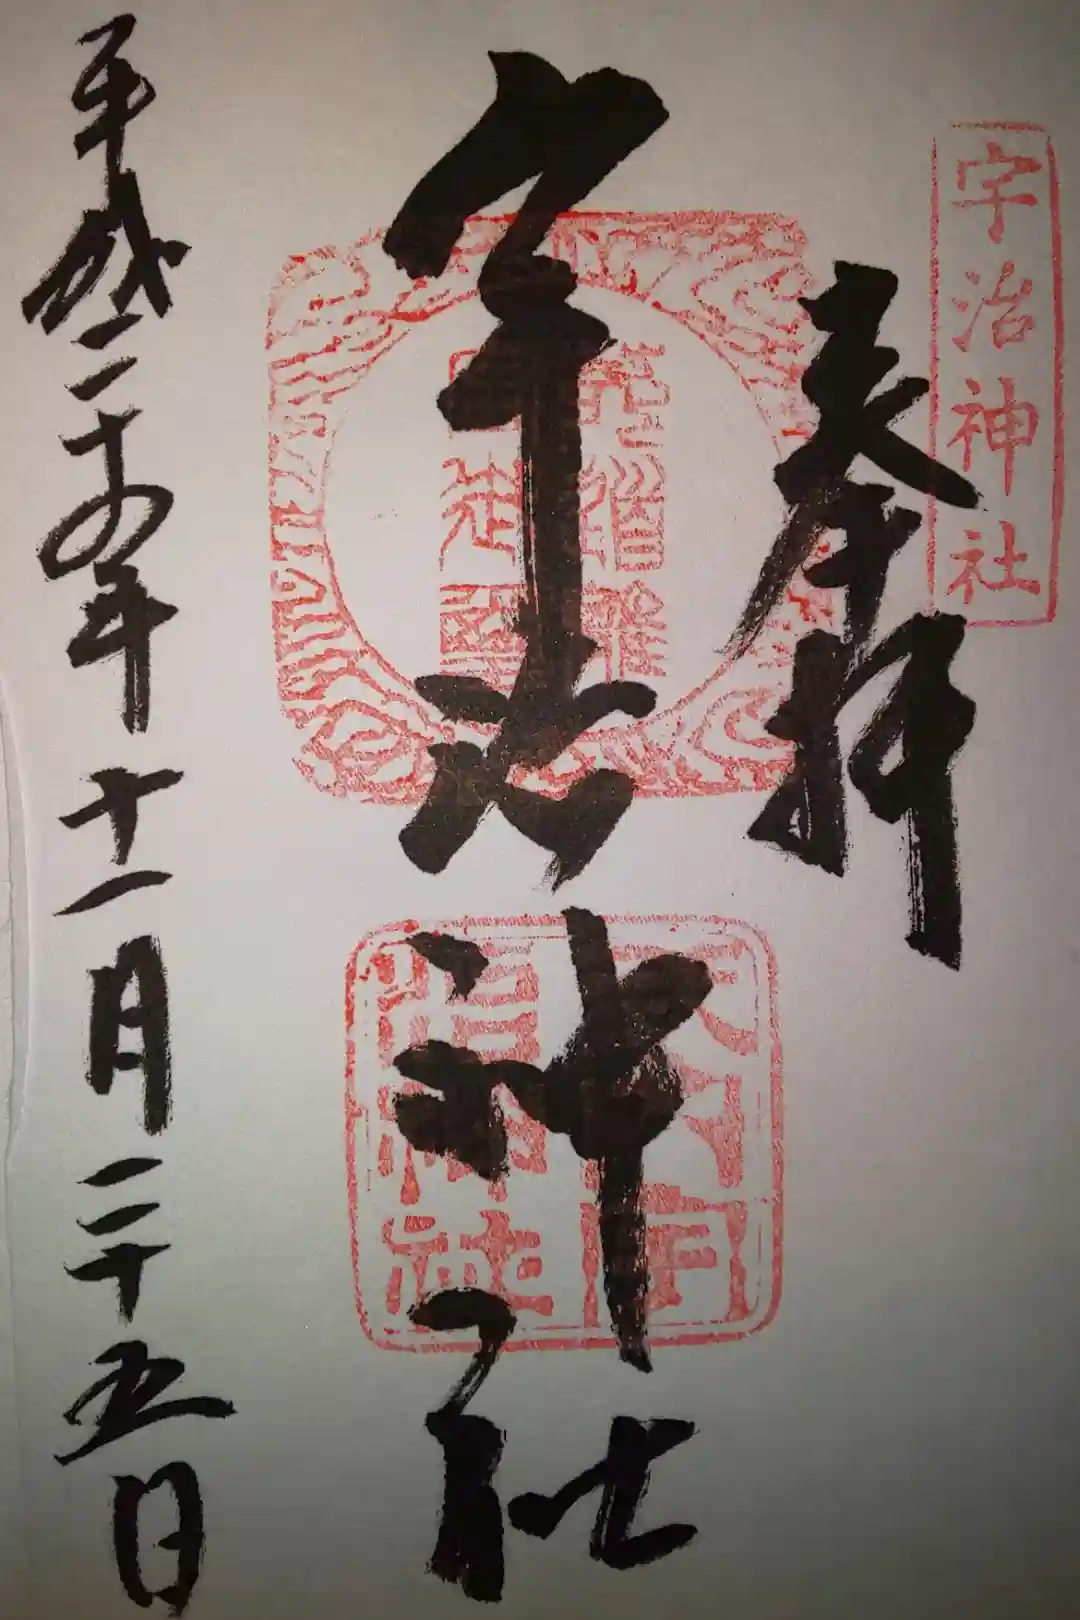 宇治神社
奉拝
宇治神社
平成二十四年十一月二十五日